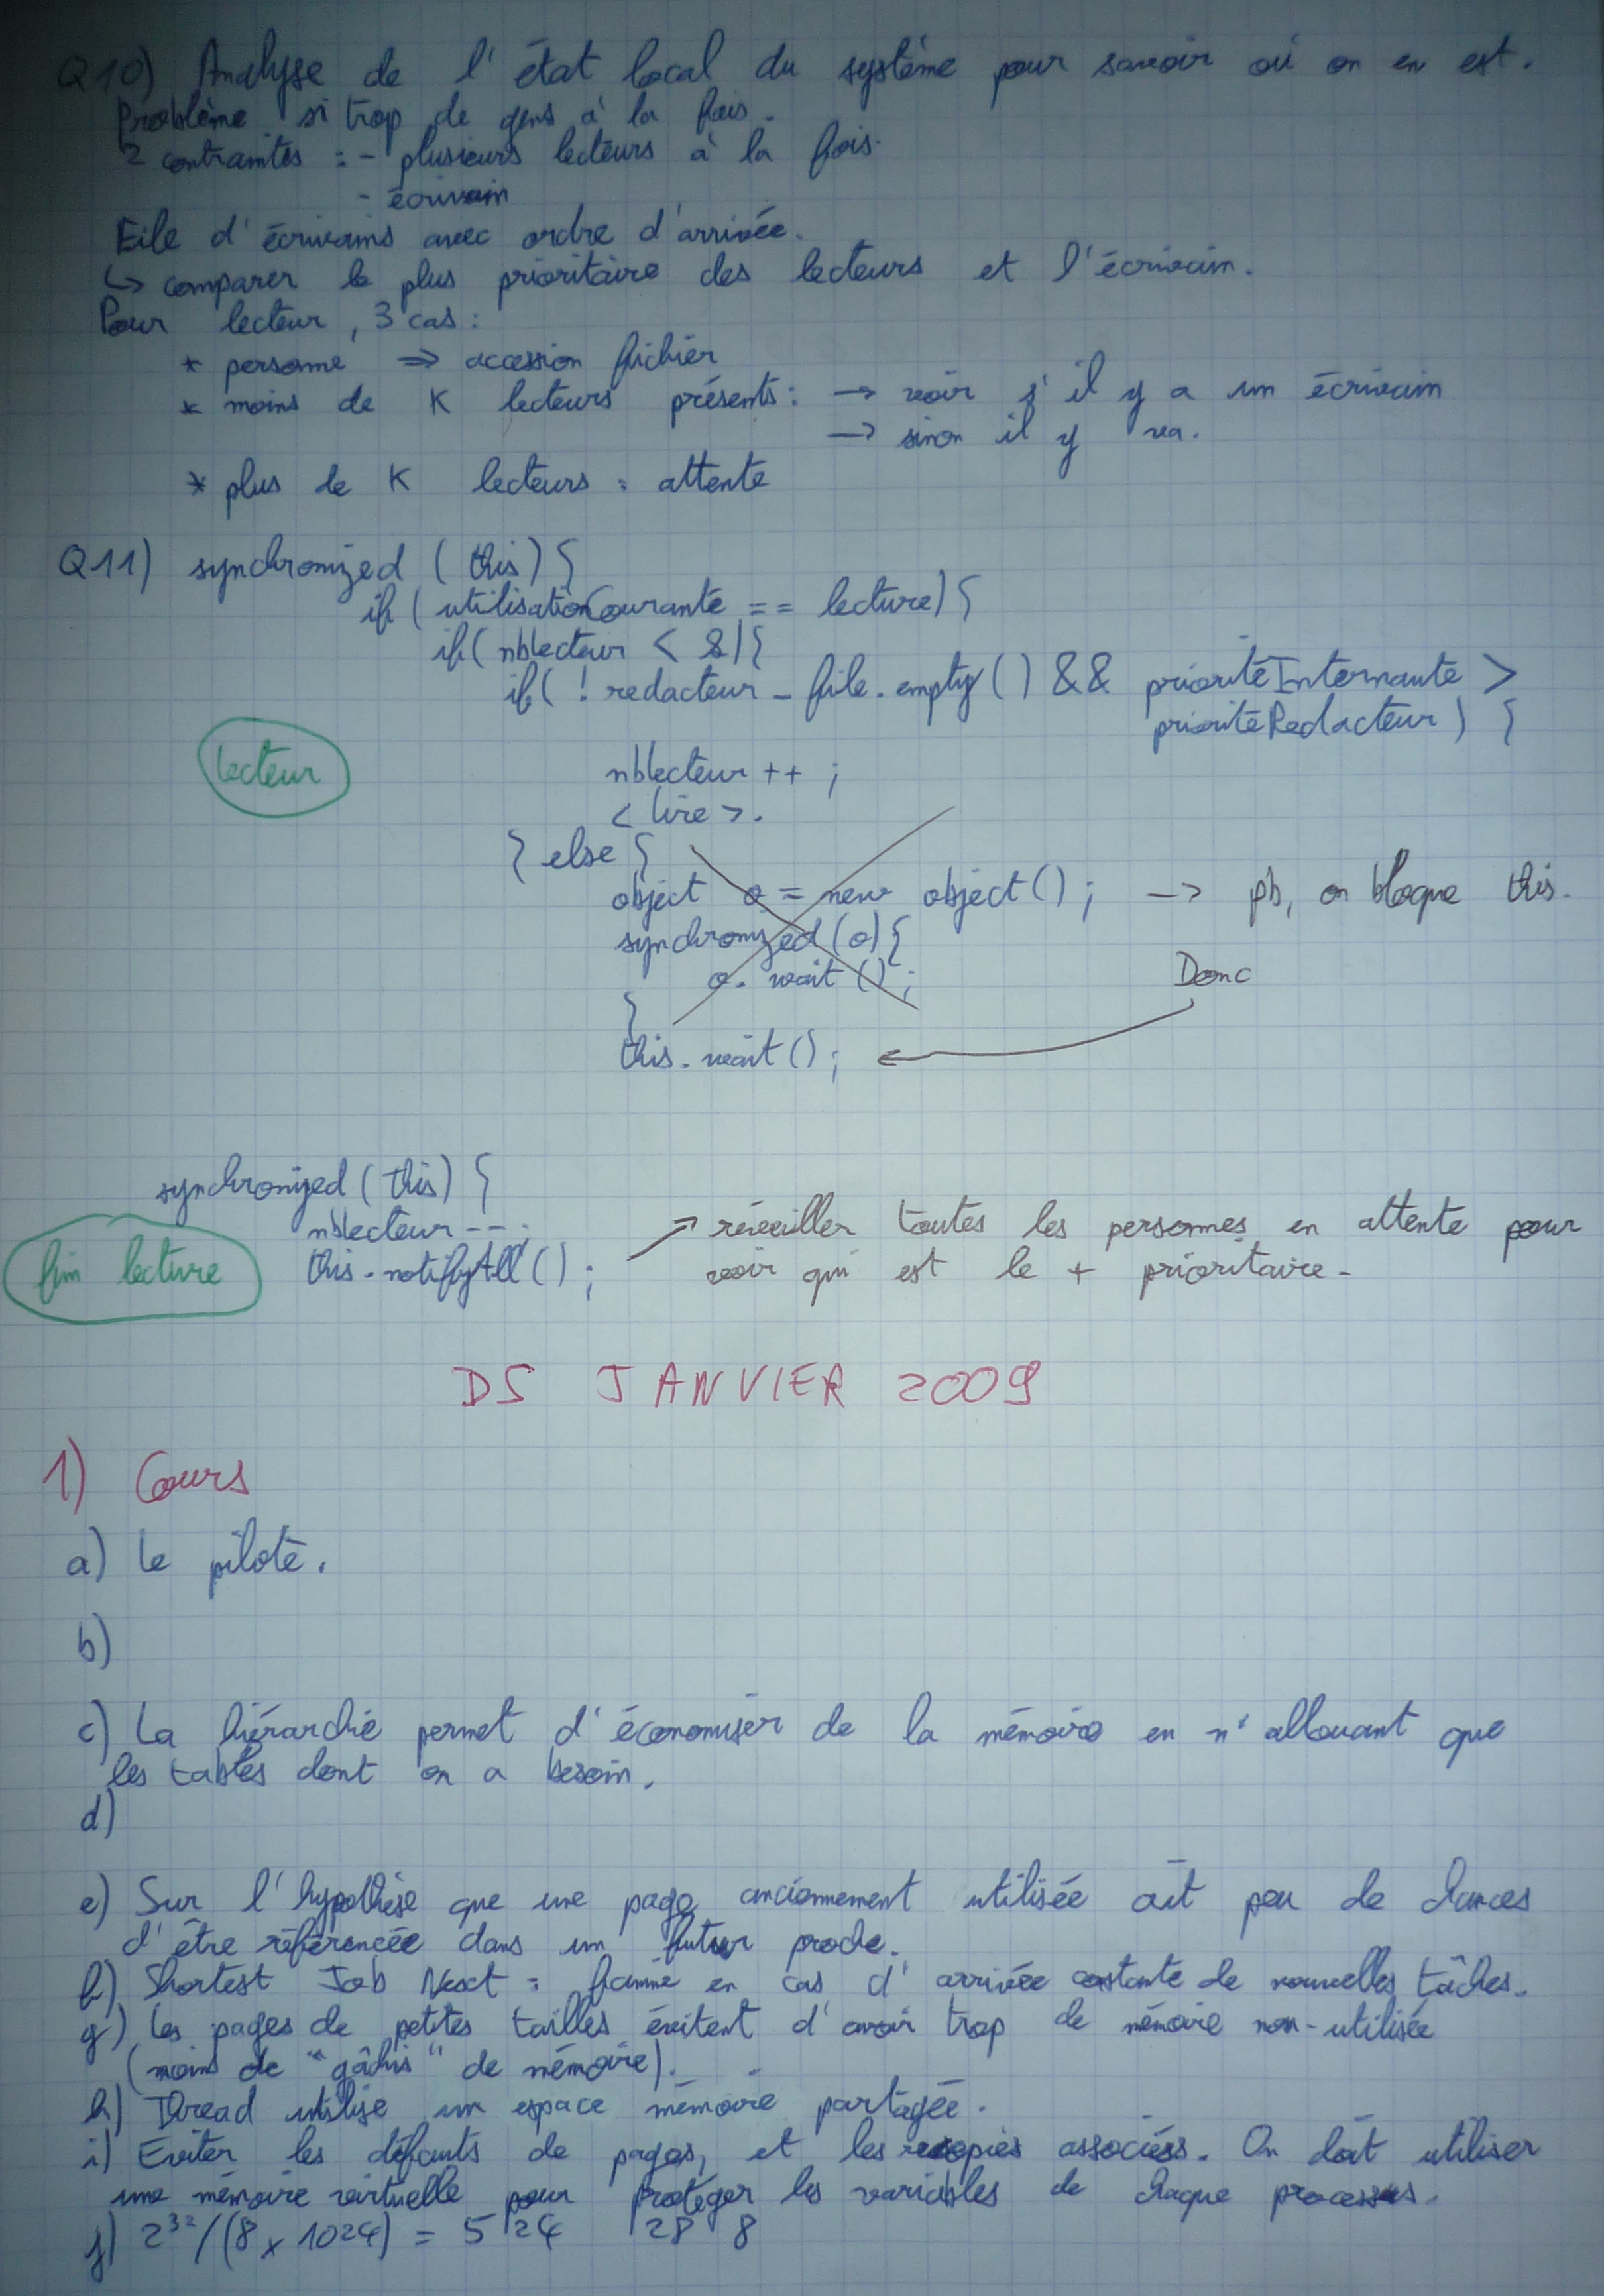 Q10) Analyse de l'état local du système pour savoir où on en est.
Problème si trop de gens à la fois.
2 contraintes : - plusieurs lecteurs à la fois.
- écrivain
File d'écrivains avec ordre d'arrivée.
↳ comparer le plus prioritaire des lecteurs et l'écrivain.
Pour lecteur, 3 cas :
* personne ⇒ accession fichier
* moins de K lecteurs présents : → voir s'il y a un écrivain
→ sinon il y va.
* plus de K lecteurs : attente
Q11) synchronized (this) {
if (utilisationCourante == lecture) {
if (nblecteur < 8) {
if (! redacteur_file.empty() && prioritéInternaute >
prioritéRedacteur) {
lecteur
nblecteur ++ ;
< lire >.
} else {
object o = new object(); → pb, on bloque this.
synchronized (o) {
o.wait ();
Donc
}
this.wait();
synchronized (this) {
nblecteur --;
→ réveiller toutes les personnes en attente pour
fin lecture
this.notifyAll();
voir qui est le + prioritaire.
DS JANVIER 2009
1) Cours
a) Le pilote.
b)
c) La hiérarchie permet d'économiser de la mémoire en n'allouant que
les tables dont on a besoin.
d)
e) Sur l'hypothèse que une page anciennement utilisée ait peu de chances
d'être référencée dans un futur proche.
f) Shortest Job Next : famine en cas d'arrivée constante de nouvelles tâches.
g) Les pages de petites tailles évitent d'avoir trop de mémoire non-utilisée
(moins de "gâchis" de mémoire).
h) Thread utilise un espace mémoire partagée.
i) Eviter les défauts de pages, et les recopies associées. On doit utiliser
une mémoire virtuelle pour protéger les variables de chaque processus.
j) 2³²/(8 x 1024) = 524 288